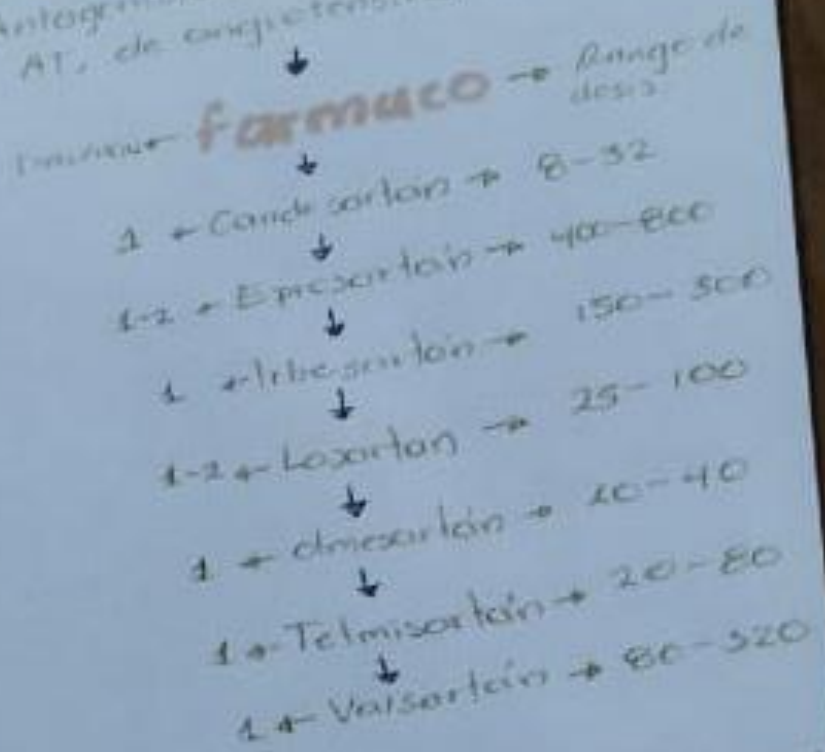 AT, de angiotens
farmaco → Rango de
dosis
1 ← Candesartan → 8-32
1-2 ← Eprosartan → 400-800
1 ← Irbesartan → 150-300
1-2 ← Losartan → 25-100
1 ← olmesartán → 20-40
1 ← Telmisartán → 20-80
1 ← Valsartán → 80-320